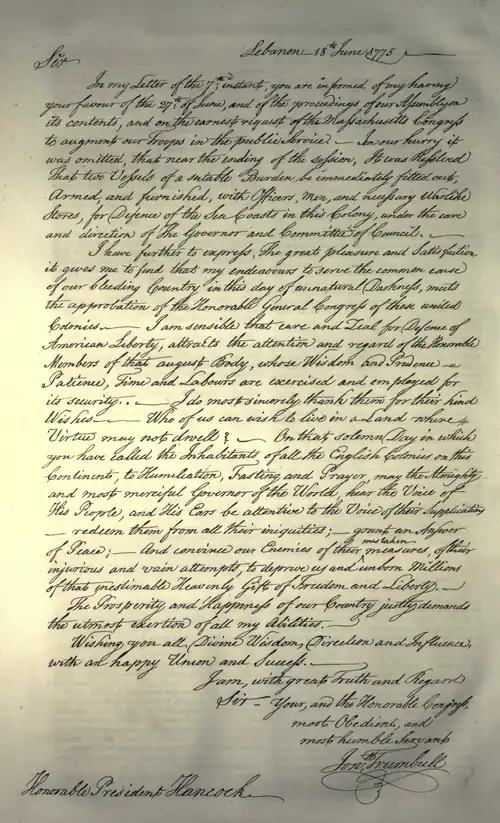 Lebanon 18th June 1775
Sir
In my Letter of the 7th instant, you are informed of my having
your favour of the 27th of June, and of the proceedings of our Assembly on
its contents, and on the earnest request of the Massachusetts Congress
to augment our Troops in the public Service. — In our hurry it
was omitted, that near the ending of the session, It was Resolved
That two Vessels of a suitable Burden be immediately fitted out,
Armed, and furnished, with Officers, Men, and necessary Warlike
Stores, for Defence of the Sea Coasts in this Colony, under the care
and direction of the Governor and Committee of Council. —
I have further to express, The great pleasure and Satisfaction
it gives me to find that my endeavours to serve the common cause
of our bleeding Country in this day of unnatural Darkness, meets
the approbation of the Honorable General Congress of these united
Colonies. — I am sensible that care and Zeal for Defence of
American Liberty, attracts the attention and regard of the Honorable
Members of that august Body, whose Wisdom and Prudence —
Patience, Time and Labours are exercised and employed for
its security. . — I do most sincerely thank them for their kind
Wishes — Who of us can wish to live in a Land where
Virtue may not dwell? — On that solemn Day in which
you have called the Inhabitants of all the English Colonies on this
Continent, to Humiliation, Fasting and Prayer, may the Almighty
and most merciful Governor of the World, hear the Voice of
His People, and His Ears be attentive to the Voice of their Supplication
— redeem them from all their iniquities; — grant an Answer
of Peace; — And convince our Enemies of their mistaken measures, of their
injurious and vain attempts, to deprive us and unborn Millions
of that inestimable Heavenly Gift of Freedom and Liberty. —
The Prosperity and Happiness of our Country justly demands
the utmost exertion of all my Abilities. —
Wishing you all, Divine Wisdom, Direction and Influence,
with an happy Union and Success. —
I am, with great Truth and Regard
Sir — Your, and the Honorable Congress,
most Obedient, and
most humble Servant
Jonth Trumbull
Honorable President Hancock